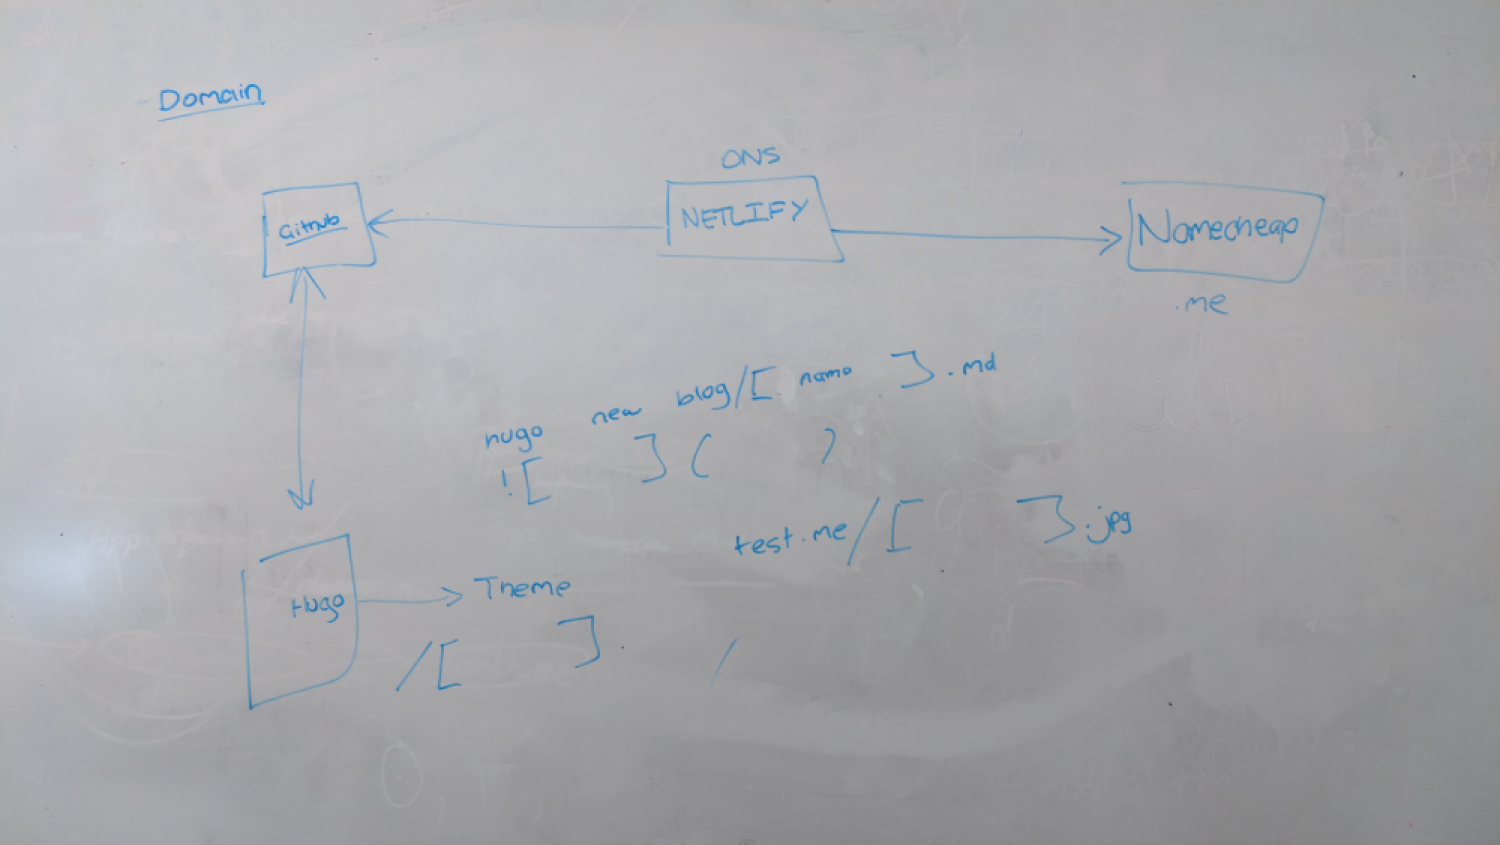 Domain
DNS
Github
NETLIFY
Namecheap
.me
hugo new blog/[ name ].md
![ ]( )
test.me/[ ].jpg
Hugo
Theme
/[ ]. /